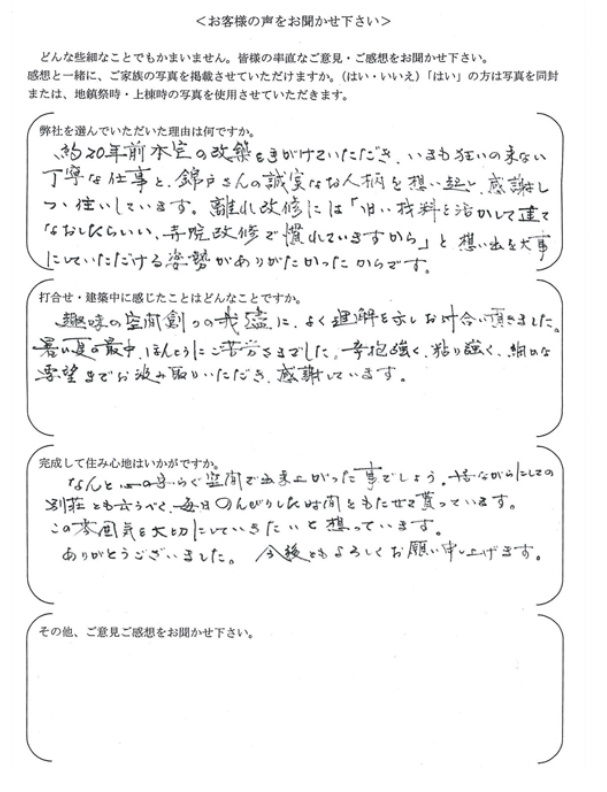 ＜お客様の声をお聞かせ下さい＞
どんな些細なことでもかまいません。皆様の率直なご意見・ご感想をお聞かせ下さい。
感想と一緒に、ご家族の写真を掲載させていただけますか。（はい・いいえ）「はい」の方は写真を同封
または、地鎮祭時・上棟時の写真を使用させていただきます。
弊社を選んでいただいた理由は何ですか。
約20年前本宅の改築を手がけていただき、いまも狂いの来ない
丁寧な仕事と、錦戸さんの誠実なお人柄を想い起し、感謝し
つゝ住いしています。離れ改修には「旧い材料を活かして建て
なおしたらいい、寺院改修で慣れていますから」と想い出を大事
にしていただける姿勢がありがたかったからです。
打合せ・建築中に感じたことはどんなことですか。
趣味の空間創りの我儘に、よく理解を示しお付合い頂きました。
暑い夏の最中、ほんとうにご苦労さまでした。辛抱強く、粘り強く、細かな
要望までお汲み取りいただき、感謝しています。
完成して住み心地はいかがですか。
なんと心の安らぐ空間で出来上がった事でしょう。居ながらにしての
別荘とも云うべく、毎日のんびりした時間をもたせて貰っています。
この雰囲気を大切にしていきたいと想っています。
ありがとうございました。 今後ともよろしくお願い申し上げます。
その他、ご意見ご感想をお聞かせ下さい。